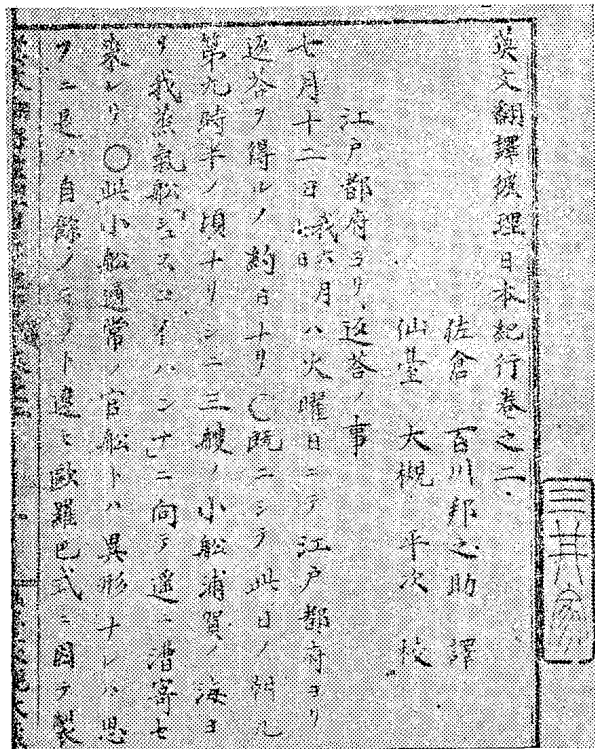 英文翻譯彼理日本紀行卷之二
佐倉 百川邦之助 譯
仙臺 大槻 平次 校
江戸都府ヨリ返答ノ事
七月十二日我六月七日ハ火曜日ニテ江戸都府ヨリ
返答ヲ得ルノ約日ナリ〇既ニシテ此日ノ朝九
第九時半ノ頃ナリシニ三艘ノ小船浦賀ノ海ヨ
リ我蒸氣船シュスコイハンナニ向テ遙ニ漕寄セ
來レリ〇此小船通常ノ官船トハ異形ナレハ思
フニ是ハ自餘ノモノト違ヒ歐羅巴式ニ因テ製